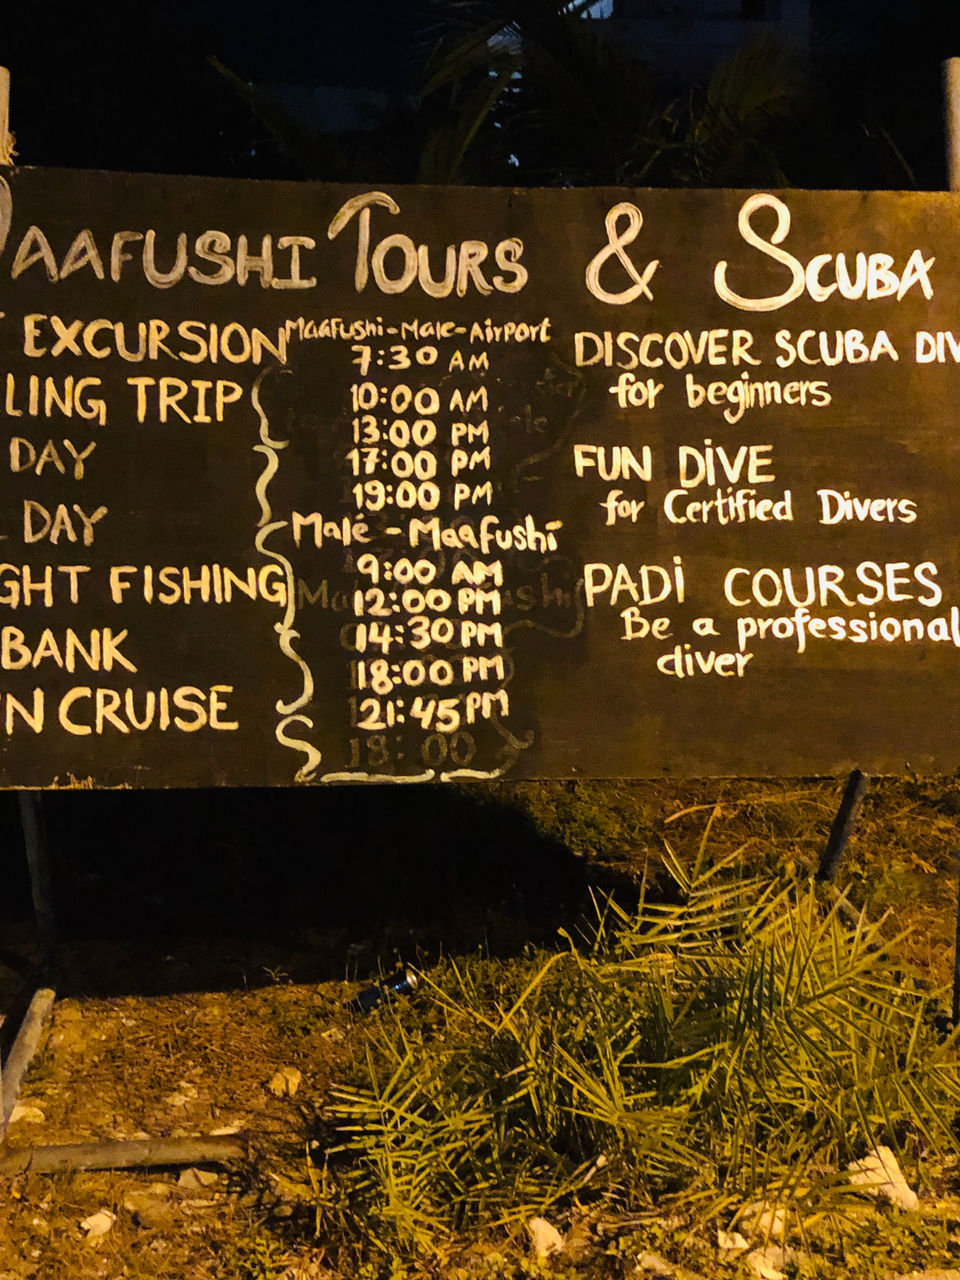 MAAFUSHI TOURS & SCUBA
EXCURSION
LING TRIP
DAY
DAY
GHT FISHING
BANK
'N CRUISE
Maafushi-Male-AirPort
7:30 AM
10:00 AM
13:00 PM
17:00 PM
19:00 PM
Malé - Maafushi
9:00 AM
12:00 PM
14:30 PM
18:00 PM
21:45 PM
18:00
DISCOVER SCUBA DIV
for beginners
FUN DiVE
for Certified Divers
PADi COURSES
Be a professional
diver